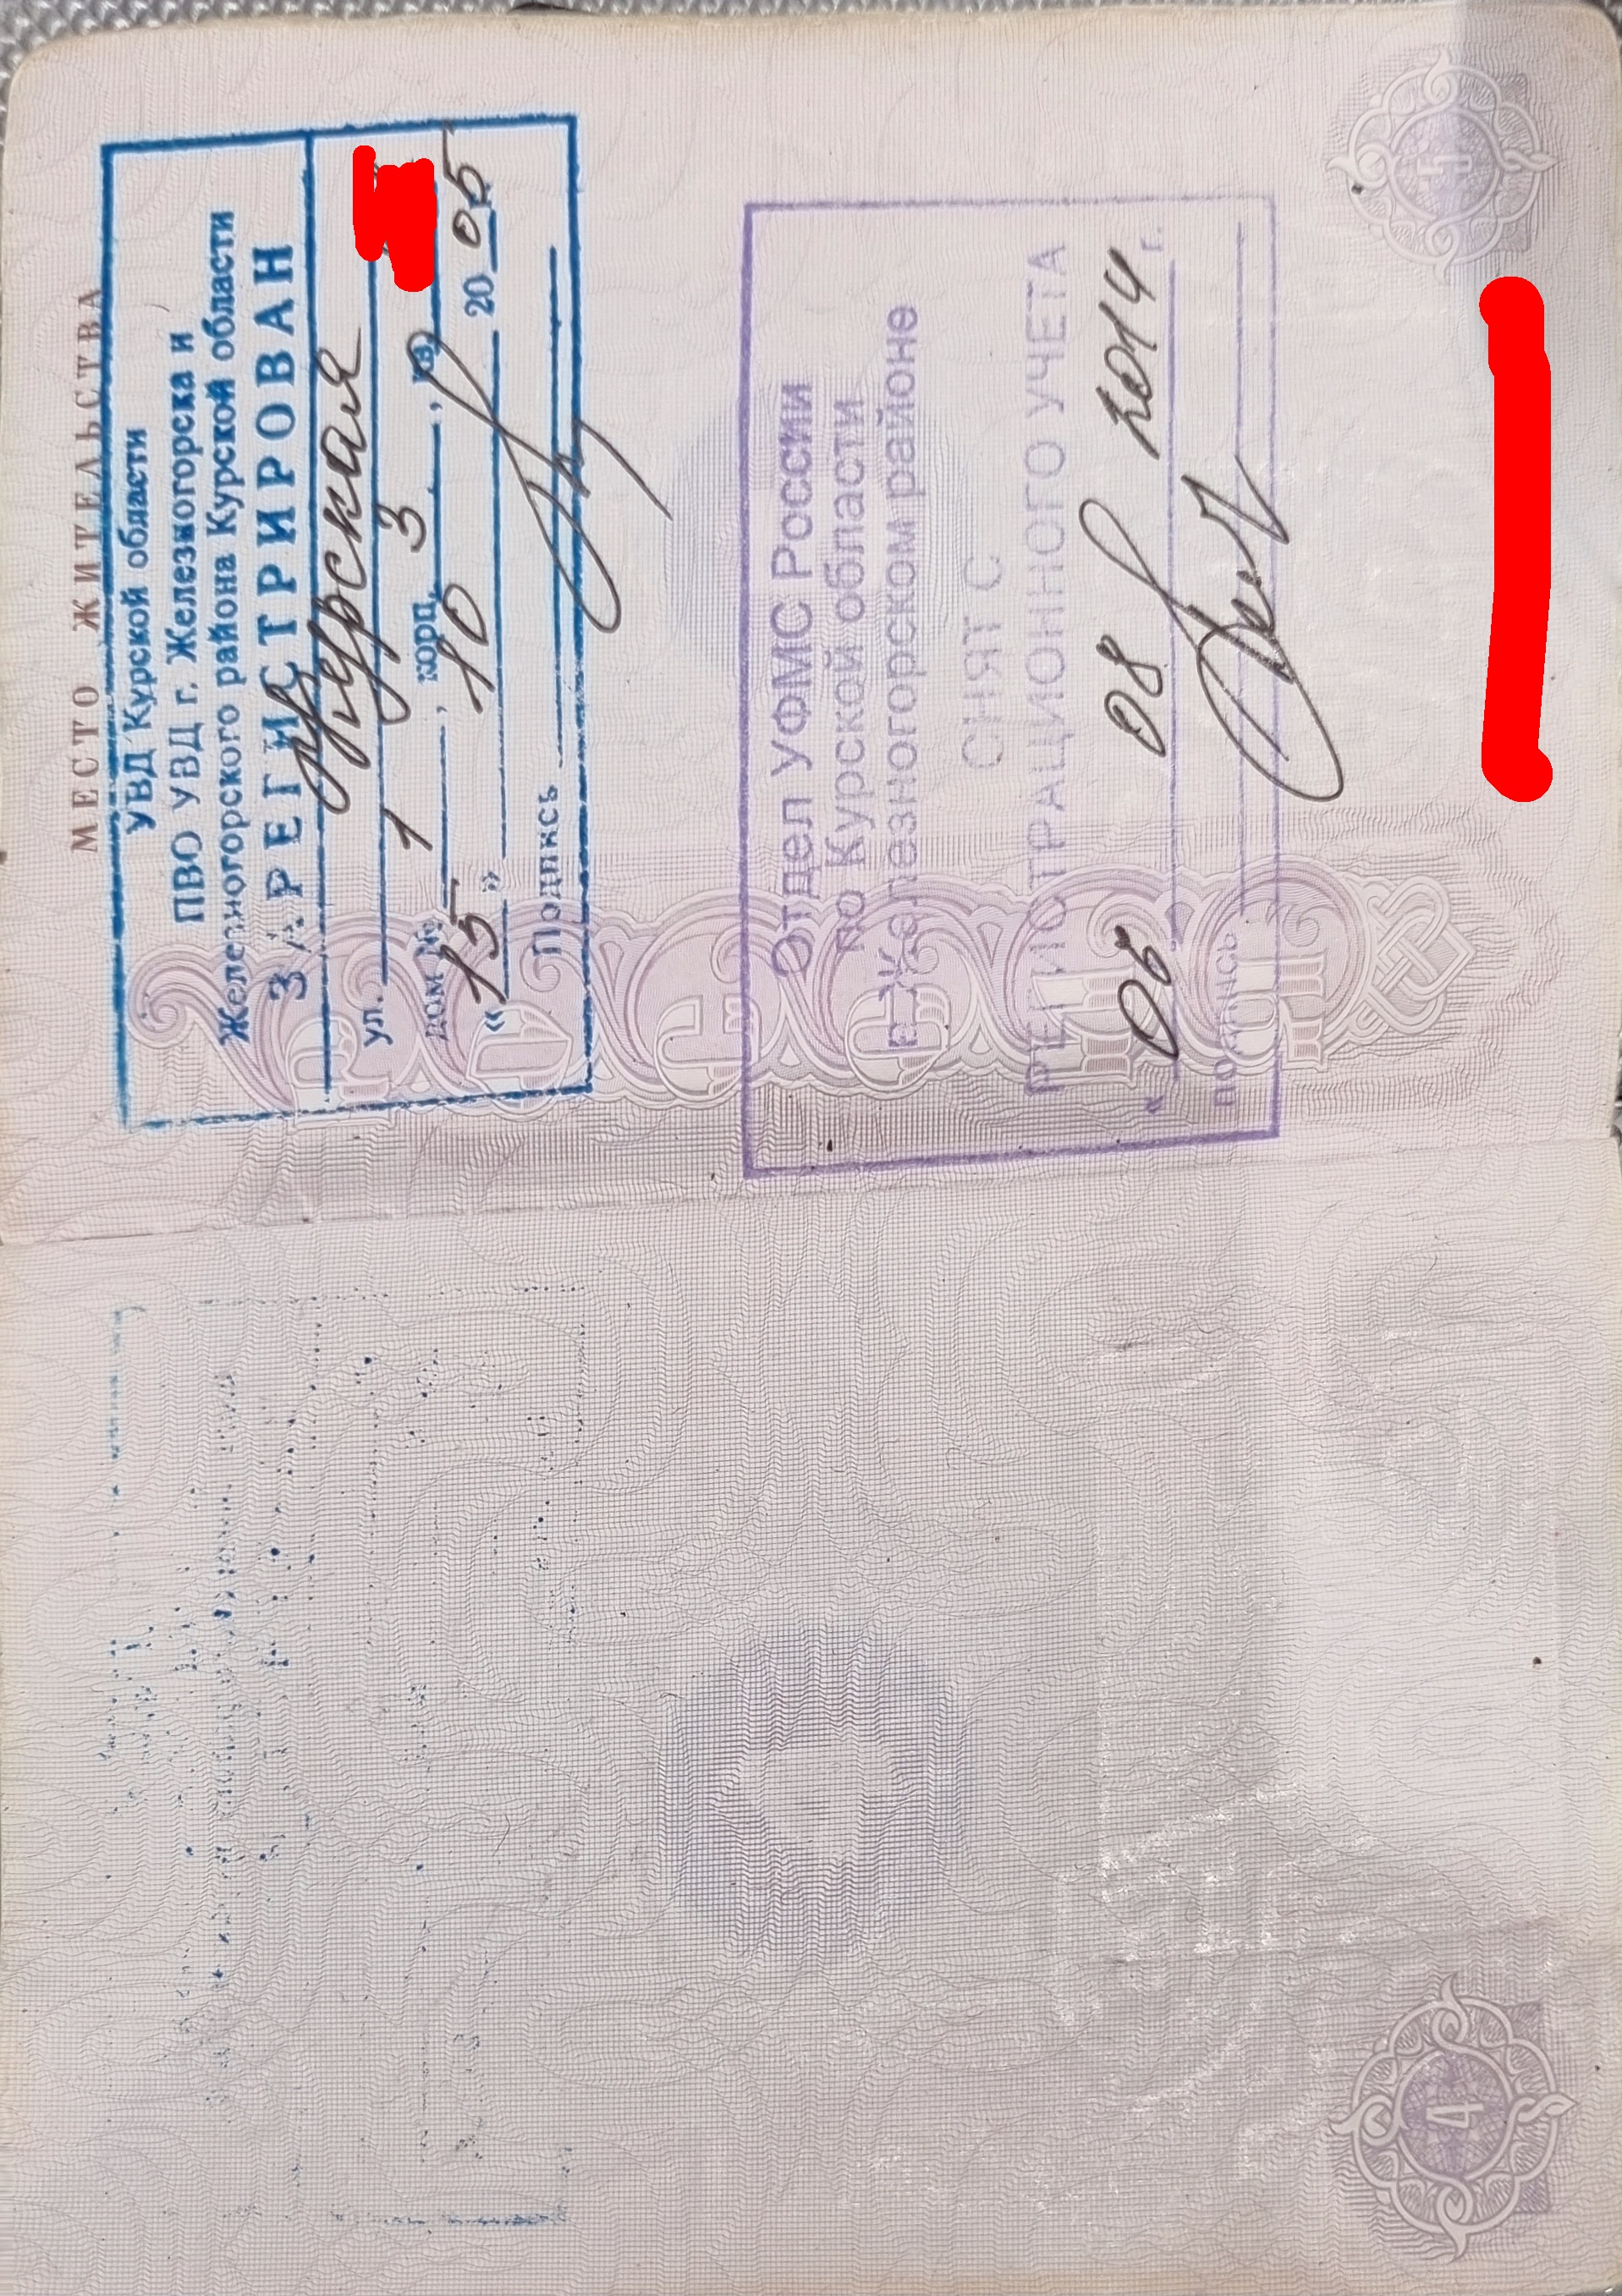 МЕСТО ЖИТЕЛЬСТВА
УВД Курской области
ПВО УВД г. Железногорска и
Железногорского района Курской области
ЗАРЕГИСТРИРОВАН
ул. Курская
дом № 1, корп. 3, кв.
«15» 10 2005
Подпись
Отдел УФМС России
по Курской области
в Железногорском районе
СНЯТ С
РЕГИСТРАЦИОННОГО УЧЕТА
«05 08 2014 г.
подпись
5
4